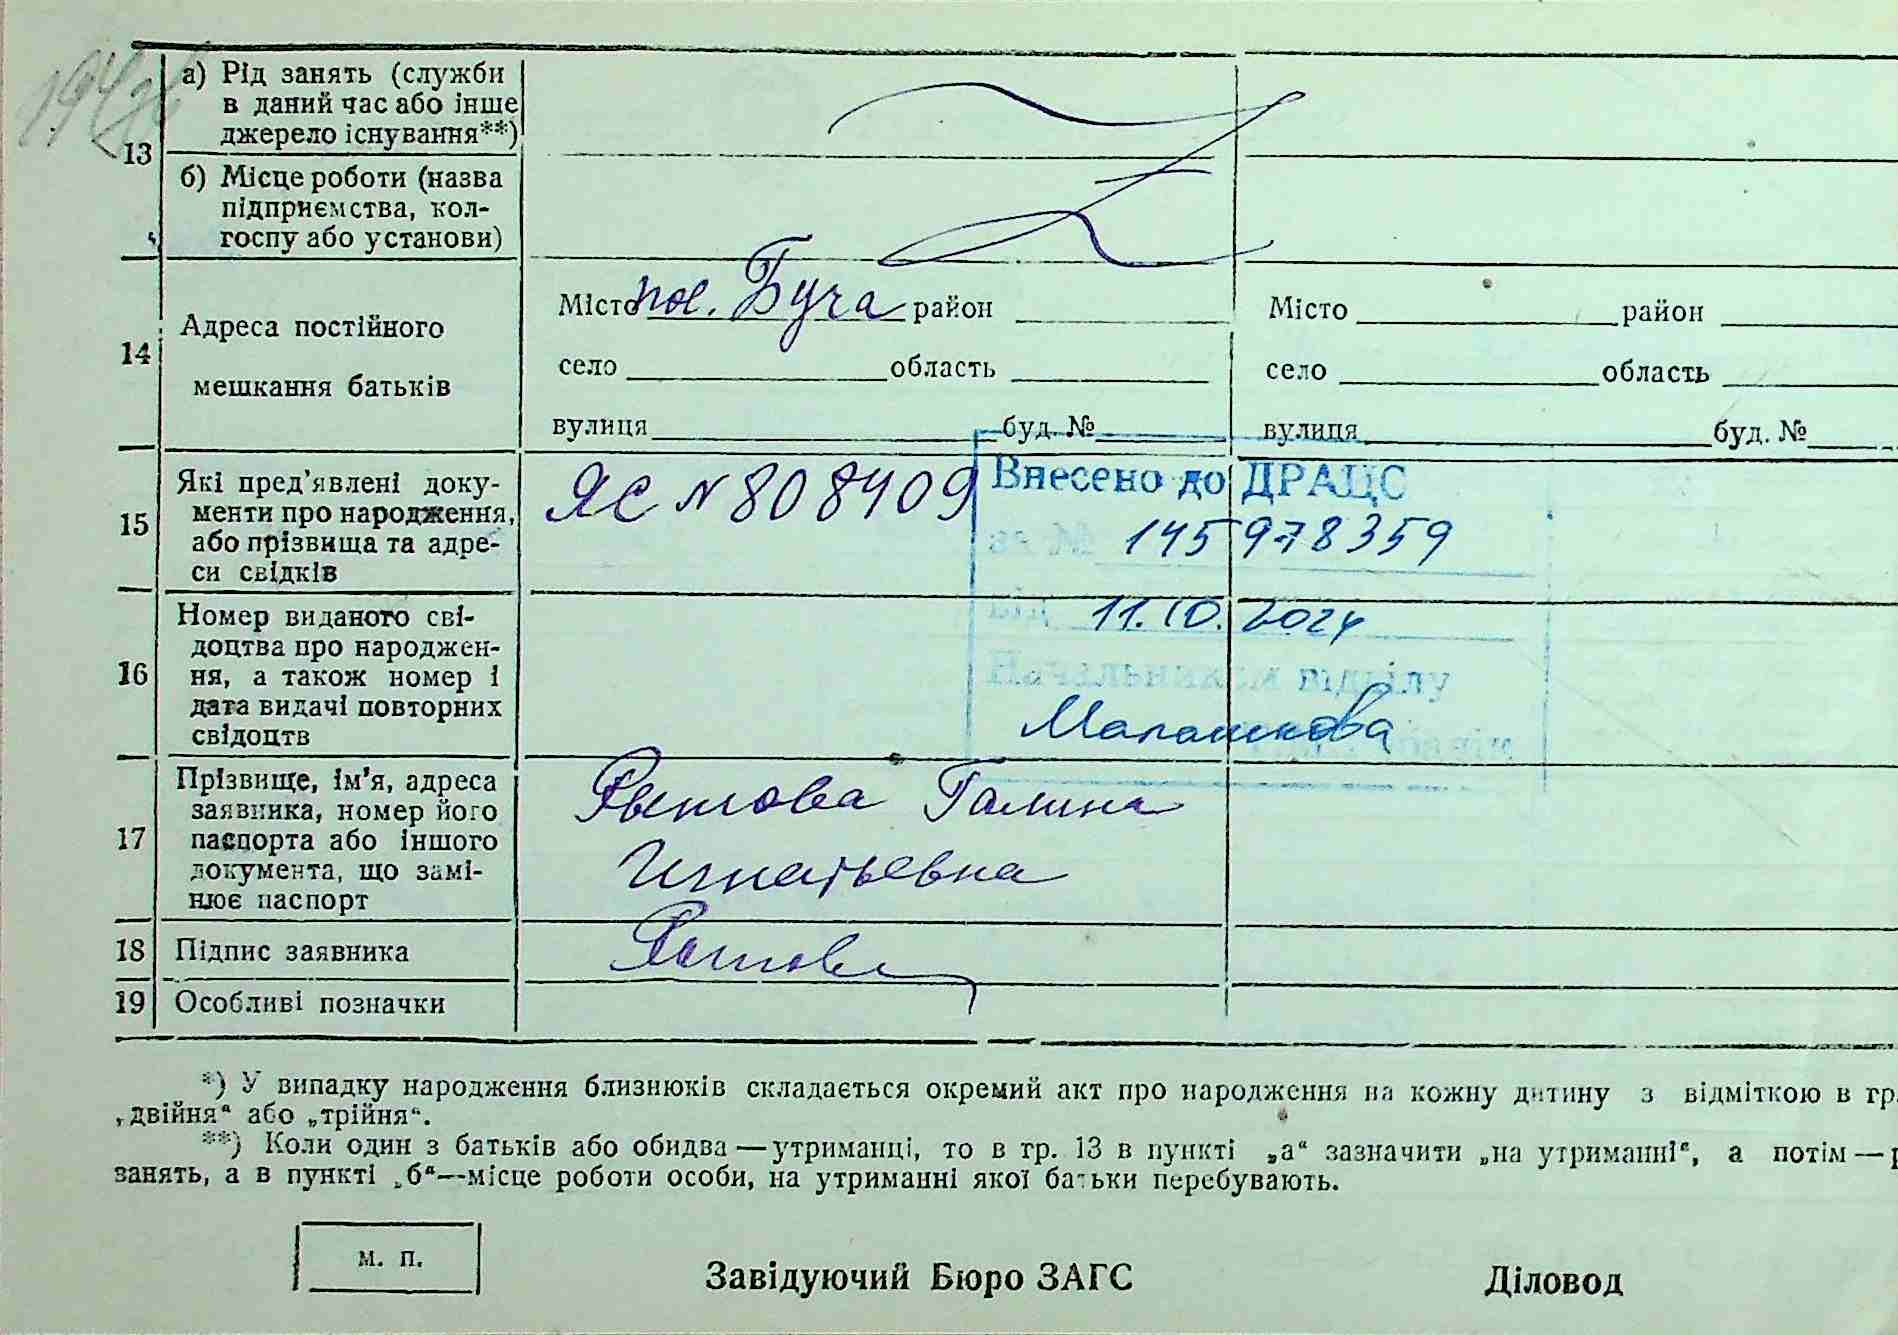 13
а) Рід занять (служби
в даний час або інше
джерело існування**)
б) Місце роботи (назва
підприємства, кол-
госпу або установи)
14
Адреса постійного
мешкання батьків
Місто пос. Буча район
село область
вулиця буд. №
Місто район
село область
вулиця буд. №
15
Які пред'явлені доку-
менти про народження,
або прізвища та адре-
си свідків
ЯС № 808409
Внесено до ДРАЦС
за № 145978359
16
Номер виданого сві-
доцтва про народжен-
ня, а також номер і
дата видачі повторних
свідоцтв
11.10.2024
Начальником відділу
17
Прізвище, ім'я, адреса
заявника, номер його
паспорта або іншого
документа, що замі-
нює паспорт
Галина
Игнатьевна
18 Підпис заявника
19 Особливі позначки
*) У випадку народження близнюків складається окремий акт про народження на кожну дитину з відміткою в гр.
„двійня“ або „трійня“.
**) Коли один з батьків або обидва — утриманці, то в гр. 13 в пункті „а“ зазначити „на утриманні“, а потім — р
занять, а в пункті „б“—місце роботи особи, на утриманні якої батьки перебувають.
м. п.
Завідуючий Бюро ЗАГС
Діловод